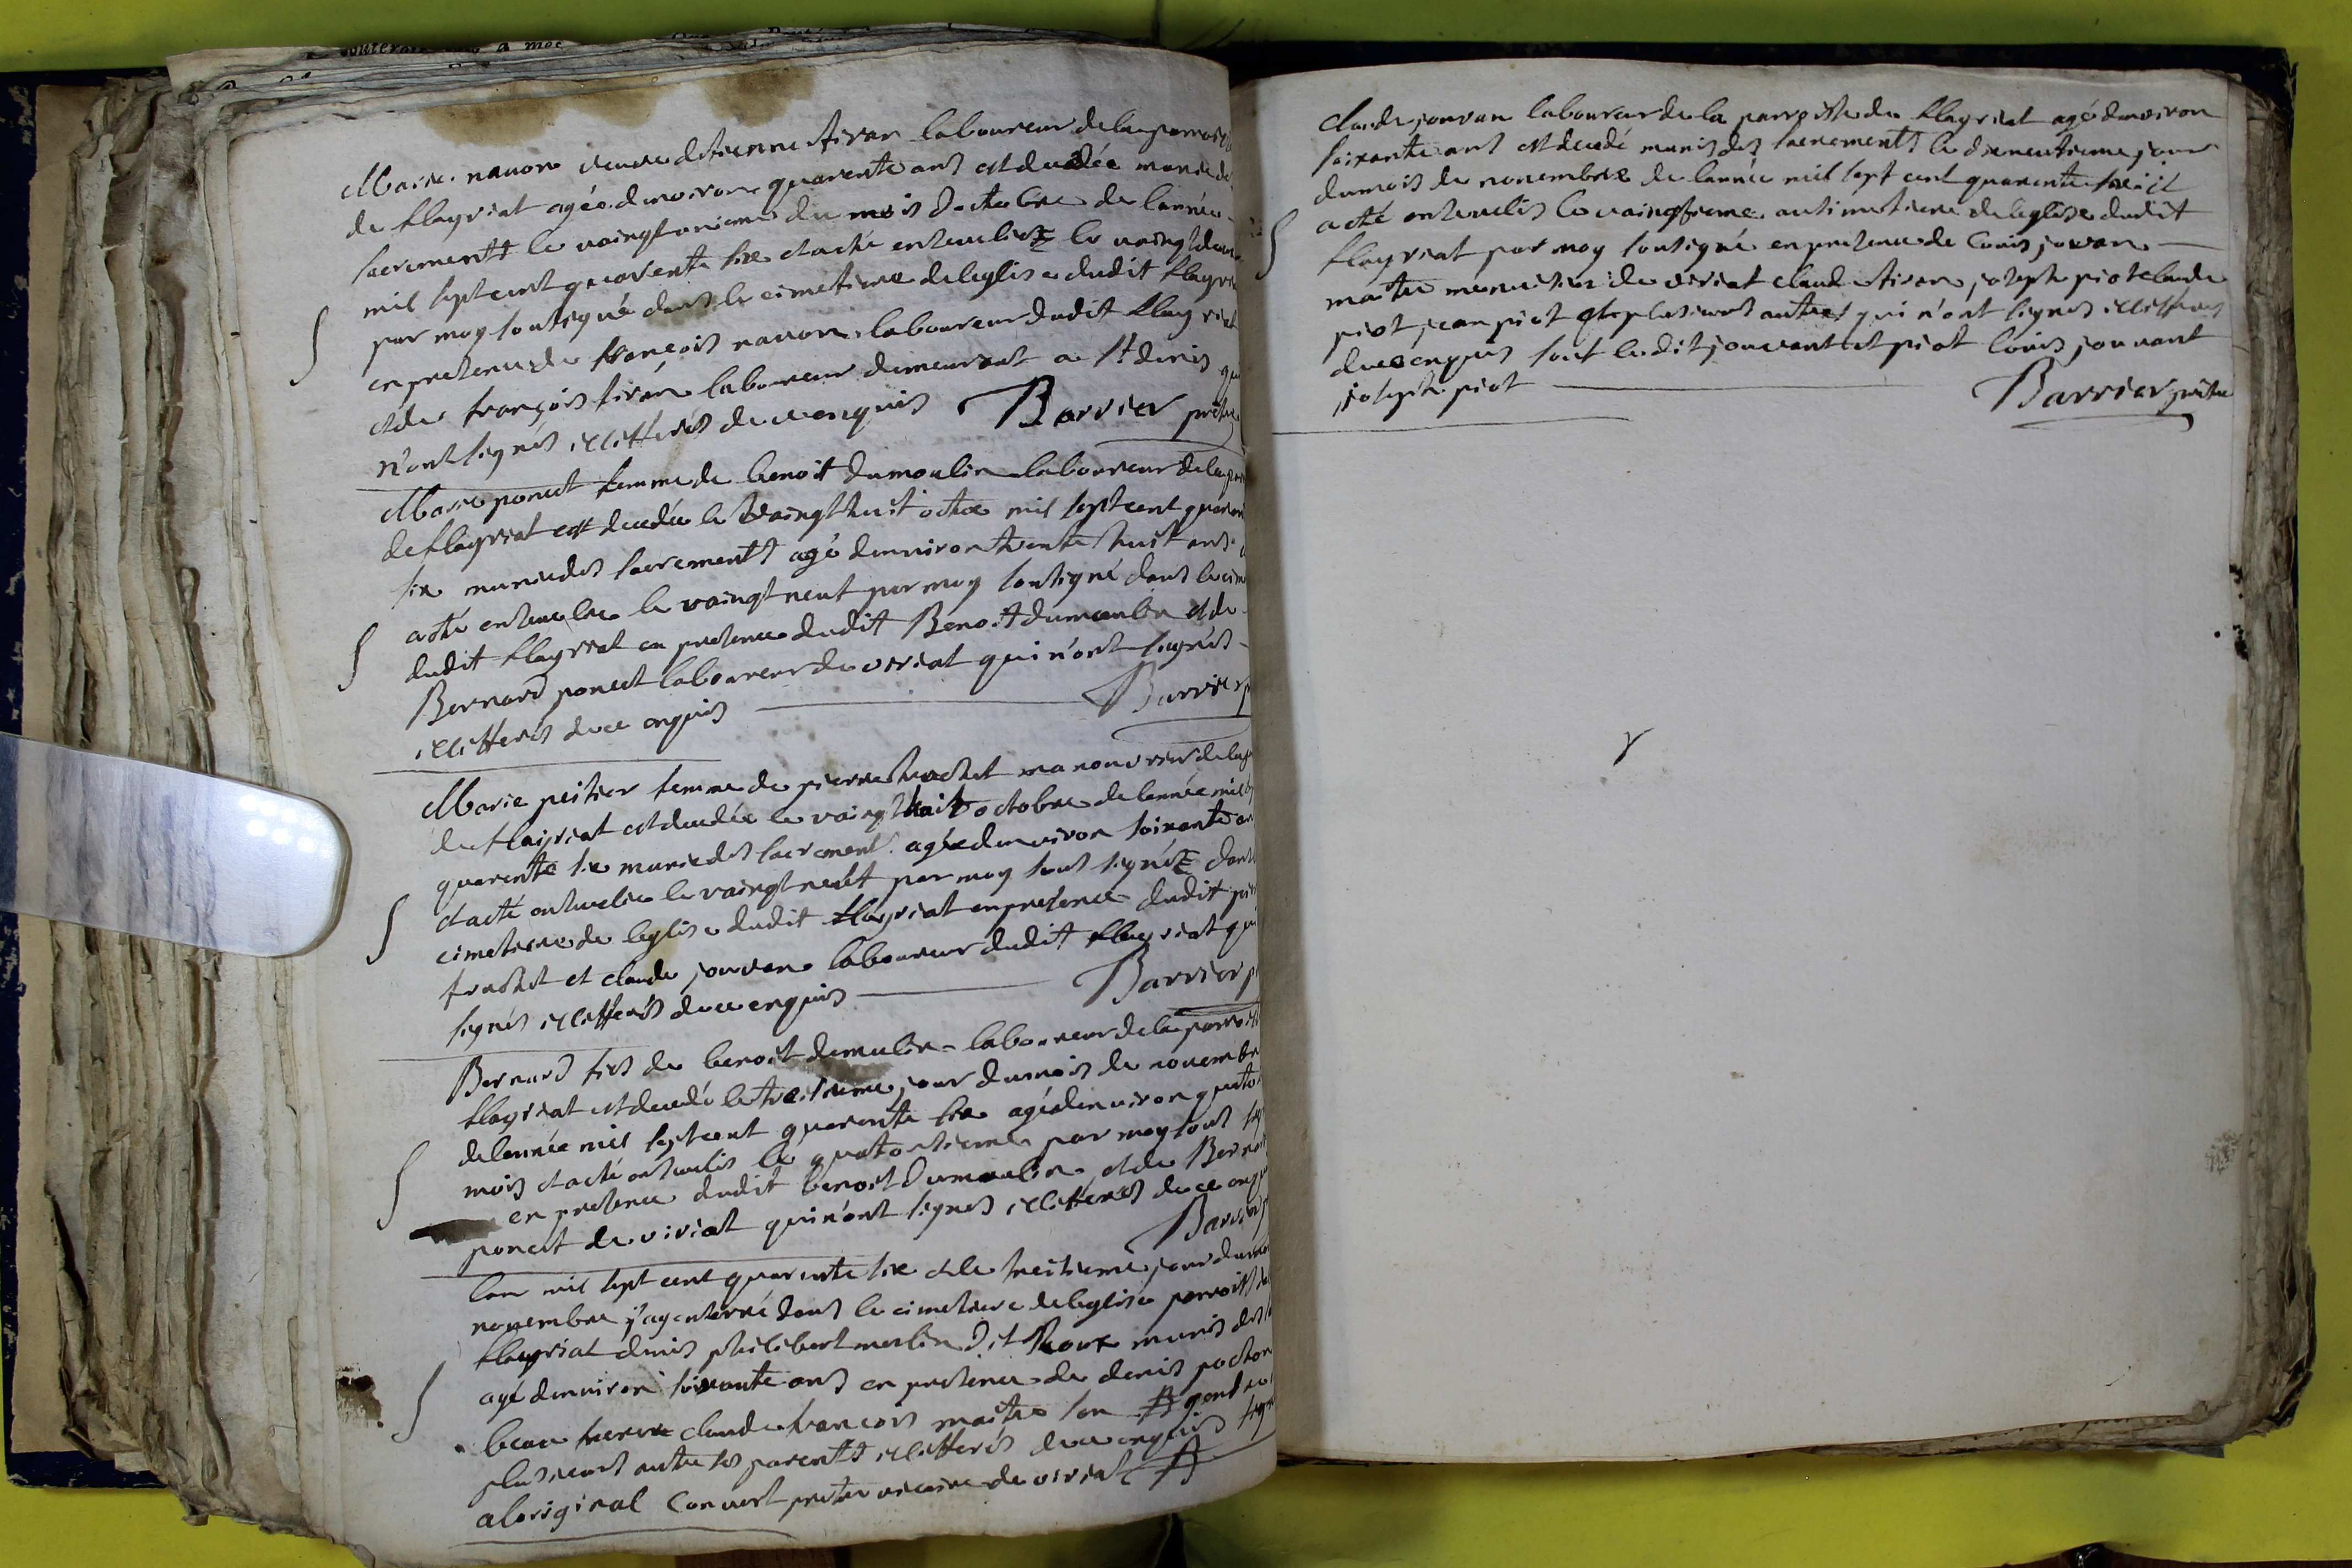 Marie navon veuve detienne tiran laboureur de la parroisse
de flayriat agée denviron quarente ans est decedée munie des
sacrements le vaingt uniême du mois doctobre de lannée
mil sept cent quarente six et a été ensevelie le vaingt deux
par moy soutsigné dans le cimetiere de leglise dudit flayriat
en presence de françois navon laboureur dudit flayriat
et de françois tiran laboureur demeurant a st denis qui
n'ont signés illitterés de ce enquis Barrier prêtre
Marie poncet femme de benoit dumoulin laboureur de la par
de flayriat est decedée le vaingt huit octbre mil sept cent quaran
six munie des sacrements agé denviron trente huit ans
a été ensevelie le vaingt neuf par moy soutsigné dans le cim
dudit flayriat en presence dudit Benoit dumoulin et de
Bernard poncet laboureur de viriat qui n'ont signés
illitterés de ce enquis Barrier p
Marie peitier femme de pierre manouvrier de la p
de flayriat est decedée le vaingt huit octobre de lannée mil
quarente six munie des sacrement agée denviron soixante an
et a été ensevelie le vaingt neuf par moy sous signé dans
cimetiere de leglise dudit flayriat en presence dudit pi
et claude jouvan laboureur dudit flayriat qui
signés illitterés de ce enquis Barrier p
Bernard fils de benoit dumulin laboureur de la parroiss
flayriat est decedé le treisieme jour du mois de novembre
de lannée mil sept cent quarente six agé denviron quator
mois et a été ensevelis le quatorsieme par moy sous sig
en presence dudit benoit Dumoulin et de Bernard
poncet de viriat qui n'ont signés illitterés de ce enqui
Barrier p
lan mil sept cent quarente six et le treisieme jour du mois
novembre j'ay enterré dans le cimetiere de leglise parroiss de
flayriat denis philibert merlin dit Roux munis des s
agé denviron soixante ans en presence de denis pochon
beau frere claude francois maitre son gendre
plusieurs autres ses parents illitterés de ce enquis signé
a loriginal Convert pretre vicaire de viriat
claude jouvan laboureur de la parroisse de flayriat agé denviron
soixante ans est decedé munis des sacrements le dixneuvieme jour
du mois de novembre de lannée mil sept cent quarente six il
a été ensevelis le vaingtieme au simetiere de leglise dudit
flayriat par moy soutsigné en presence de Louis jouvan
maitre menuisier de viriat claude tiran joseph piot claude
piot jean piot et plusieurs autres qui n'ont signés illitterés
de ce enquis sauf ledit jouvant et piot louis jouvant
joseph piot Barrier prêtre